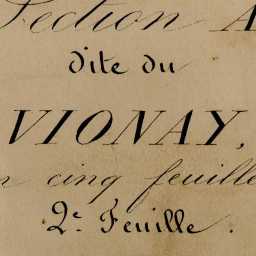 Section A
dite du
VIONAY,
n cinq feuille
2e. Feuille.